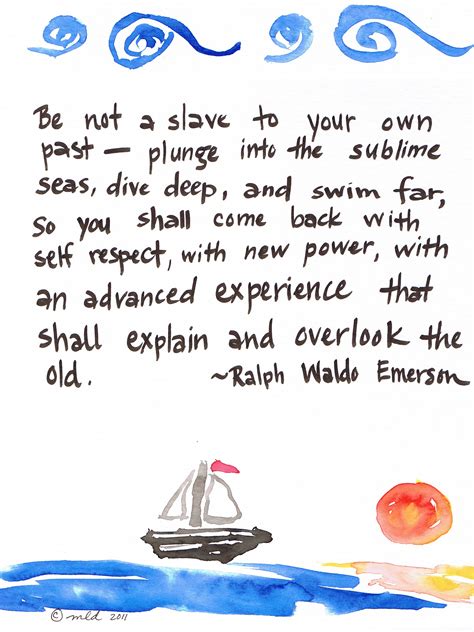 Be not a slave to your own
past — plunge into the sublime
seas, dive deep, and swim far,
so you shall come back with
self respect, with new power, with
an advanced experience that
shall explain and overlook the
old. ~Ralph Waldo Emerson
© mld 2011